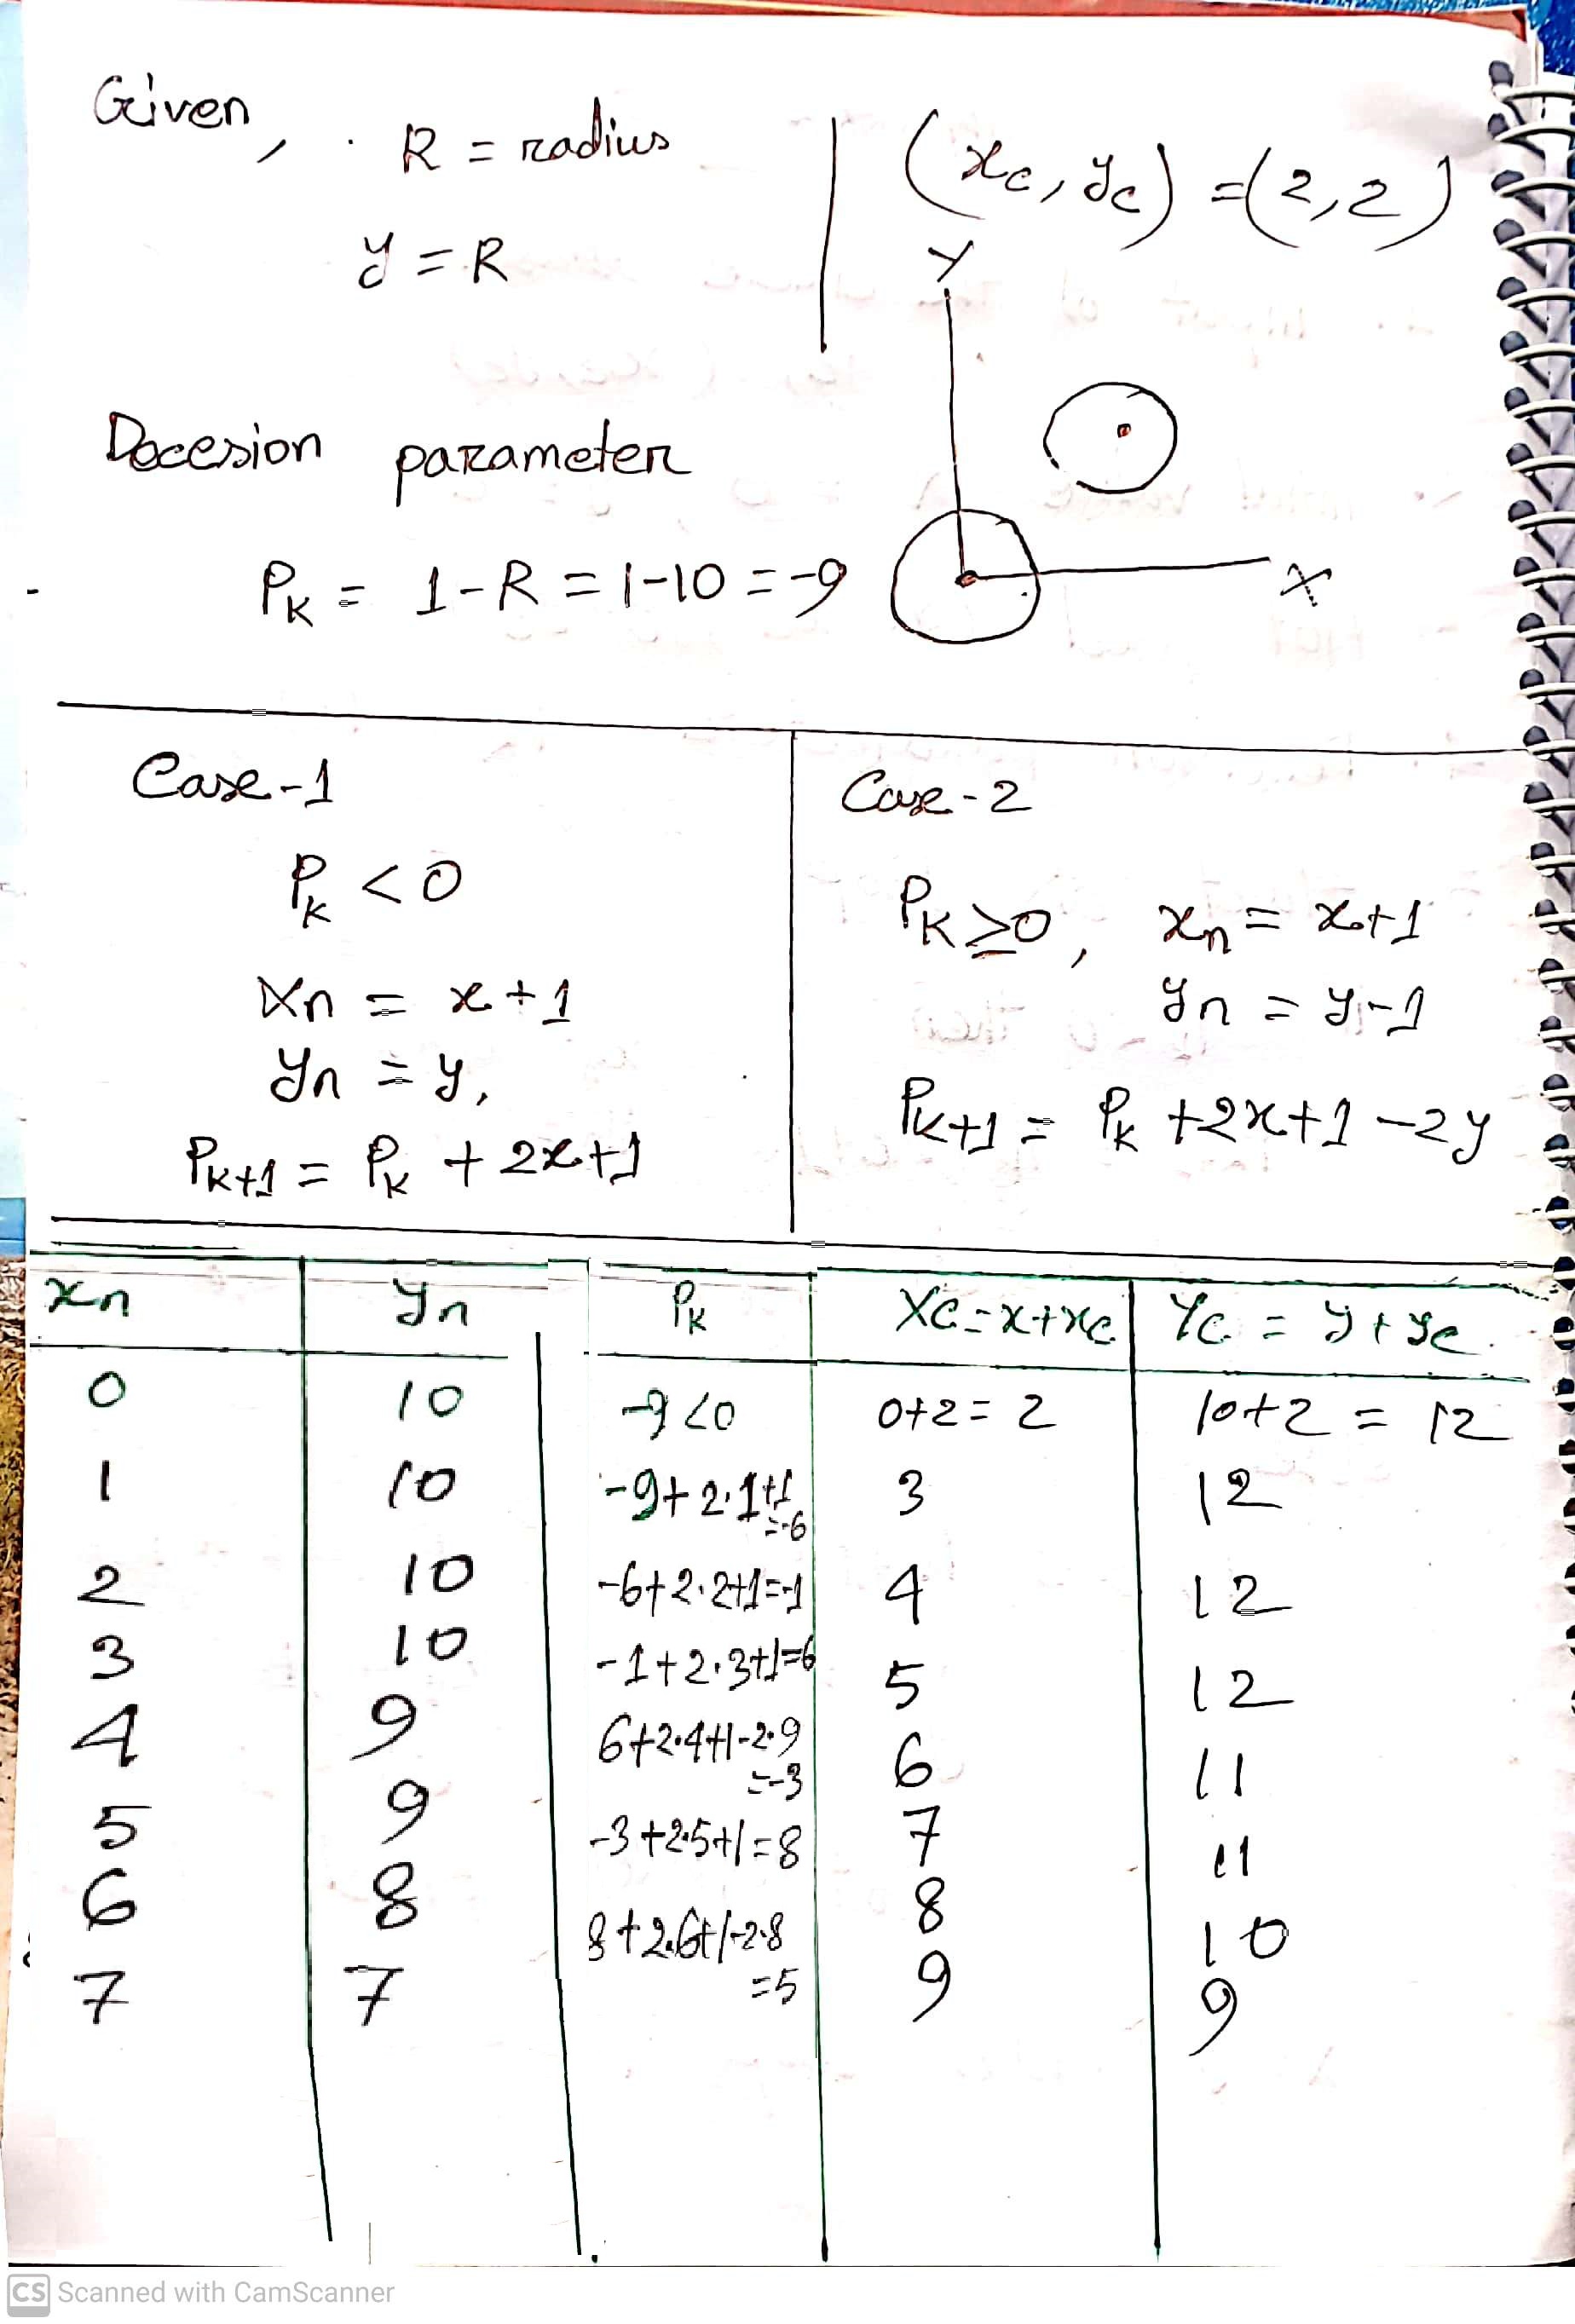 Given, R = radius
(xc, yc) = (2,2)
y = R
Y
Decesion parameter
PK = 1-R = 1-10 = -9
X
Case-1
PK <0
Xn = x+1
Yn = y,
PK+1 = PK + 2x+1
Case-2
PK ≥0, xn = x+1
yn = y-1
PK+1 = PK +2x+1 -2y
xn yn PK XC=x+xc YC = y+yc
0 10 -9<0 0+2=2 10+2 = 12
1 10 -9+2.1+1 =-6 3 12
2 10 -6+2.2+1=-1 4 12
3 10 -1+2.3+1=6 5 12
4 9 6+2.4+1-2.9 =-3 6 11
5 9 -3+2.5+1=8 7 11
6 8 8+2.6+1-2.8 =5 8 10
7 7 9 9
CS Scanned with CamScanner